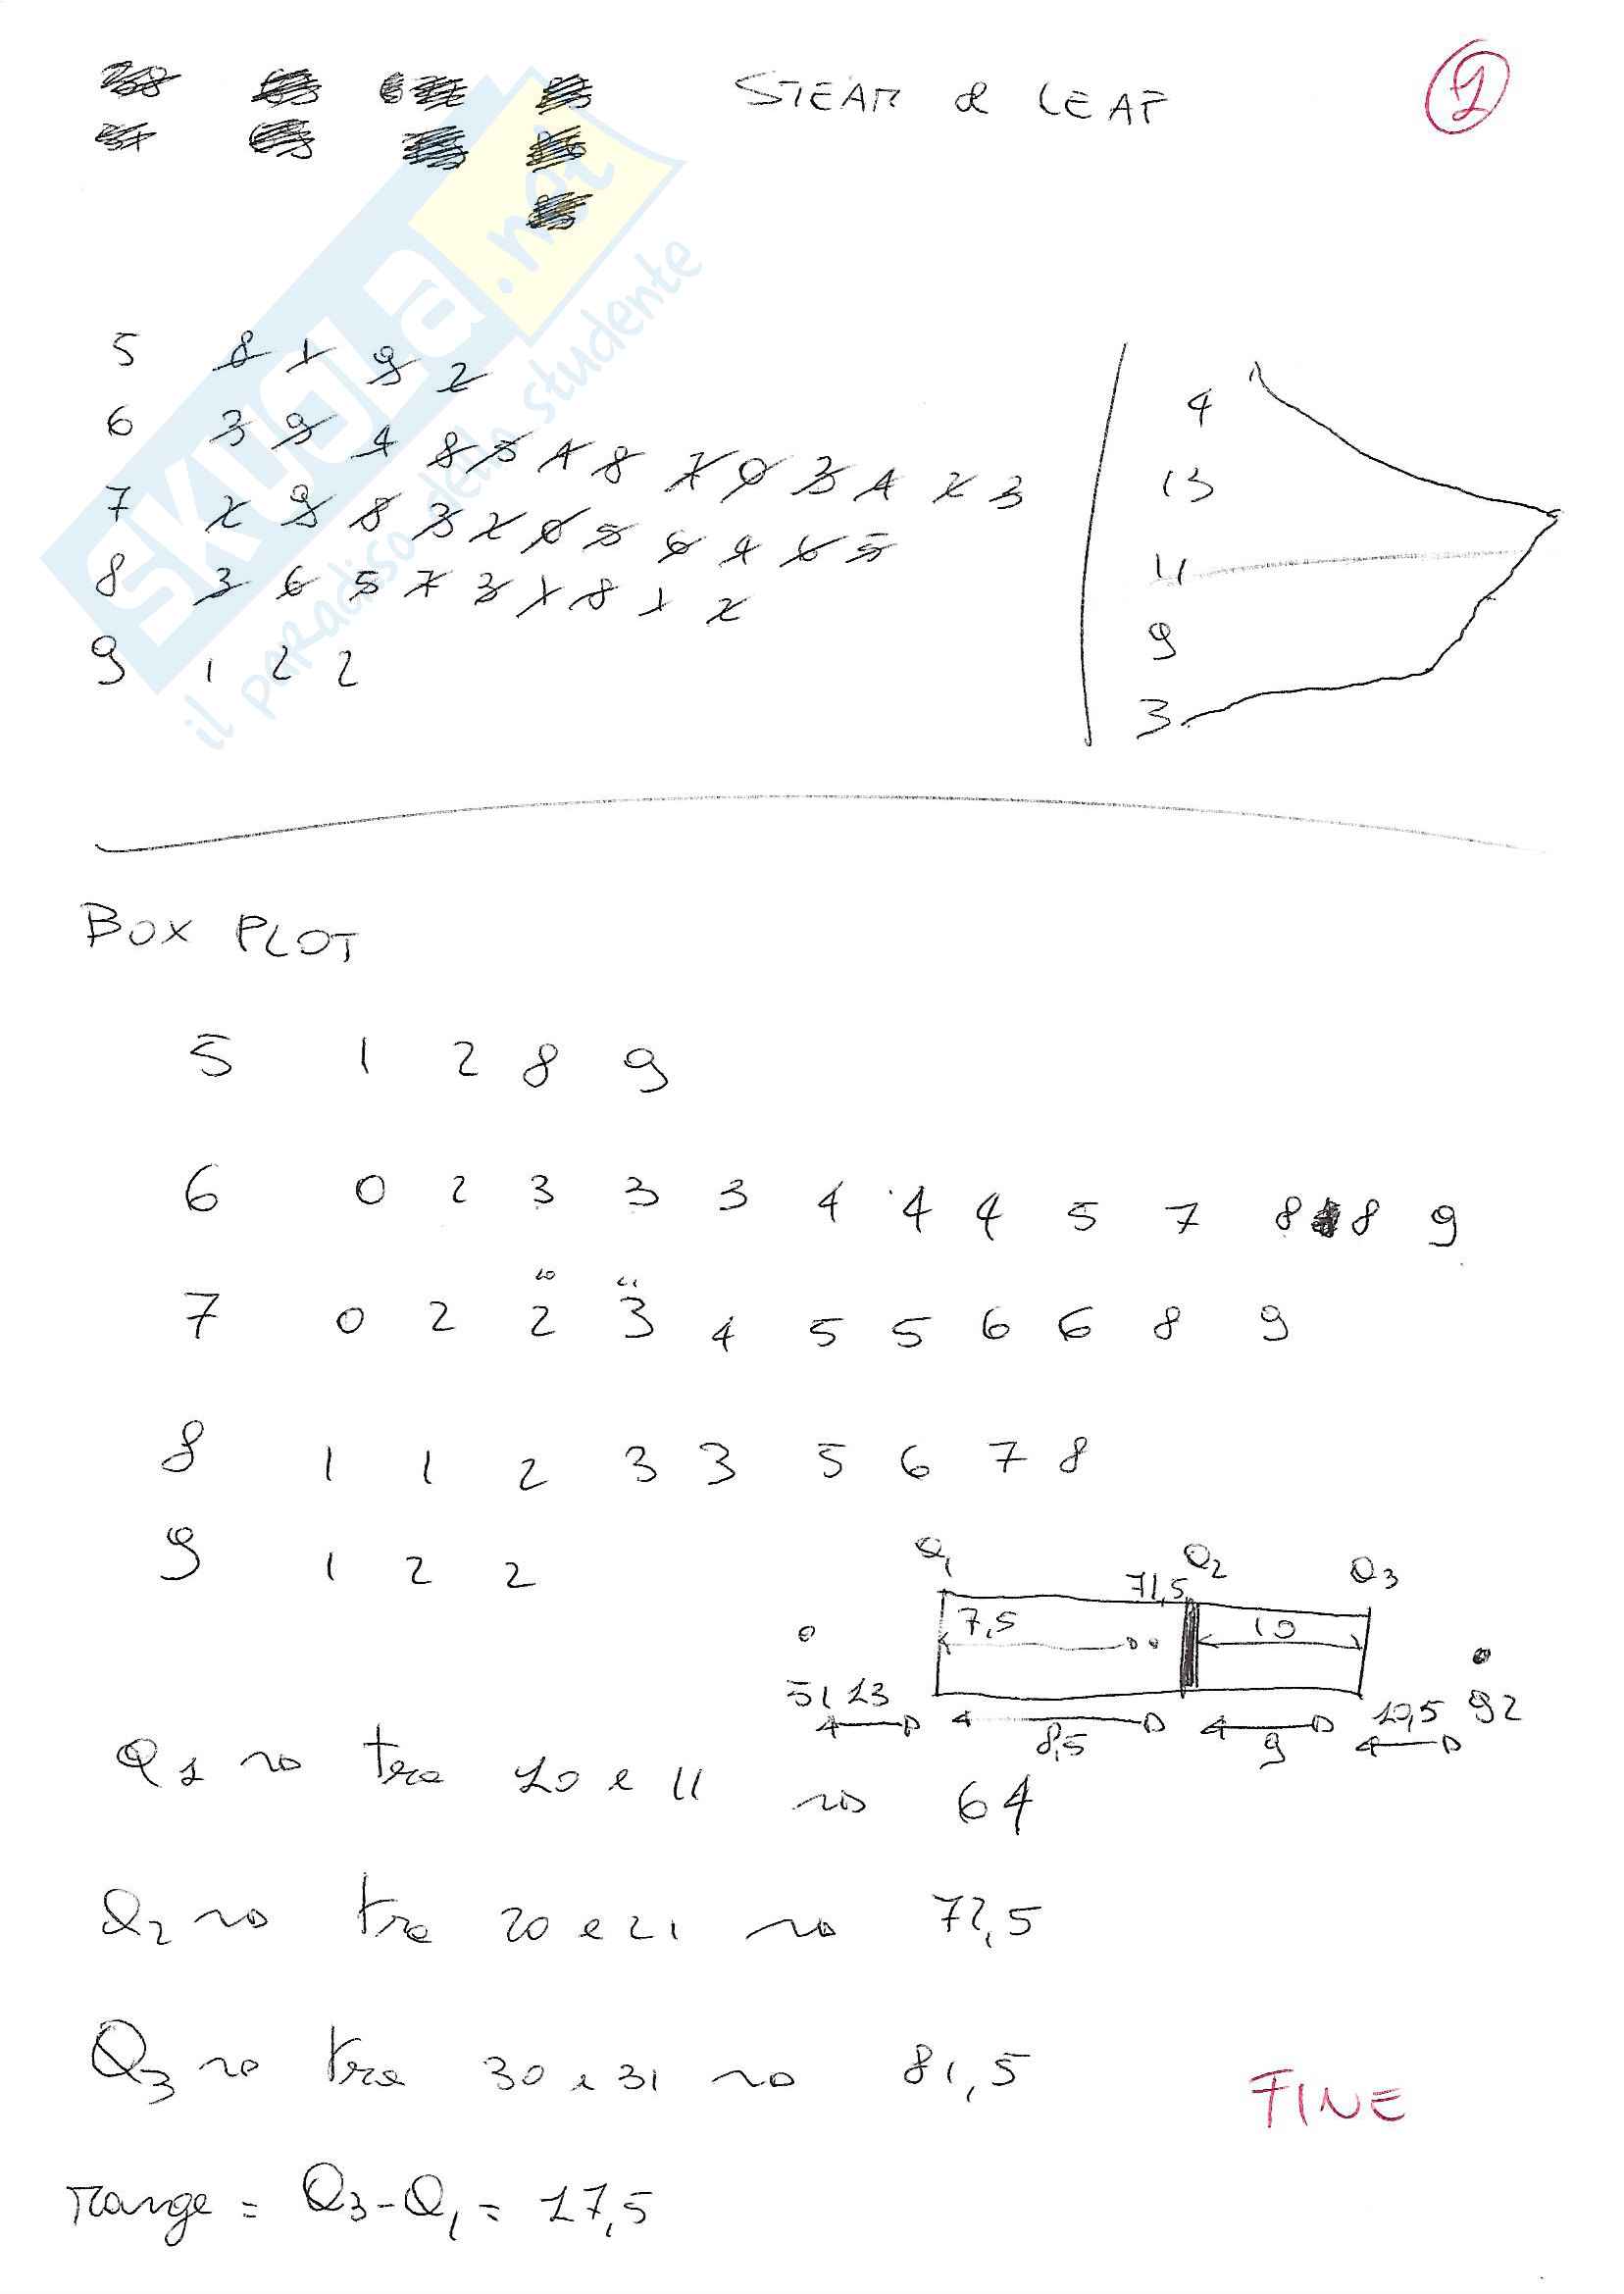 STEAM & LEAF
1
SKUOLA.net
il paradiso dello studente
5 8 1 9 2
6 3 9 4 8 5 4 8 7 0 3 4 2 3
7 2 9 8 3 2 0 5 6 4 6 5
8 3 6 5 7 3 1 8 1 2
9 1 2 2
4
13
11
9
3
BOX PLOT
5 1 2 8 9
6 0 2 3 3 3 4 4 4 5 7 8 8 9
10 11
7 0 2 2 3 4 5 5 6 6 8 9
8 1 1 2 3 3 5 6 7 8
9 1 2 2
Q1 71,5 Q2 Q3
7,5 10
51 13 8,5 9 10,5 92
Q1 tra 10 e 11 64
Q2 tra 20 e 21 72,5
Q3 tra 30 e 31 81,5
FINE
range = Q3-Q1 = 17,5